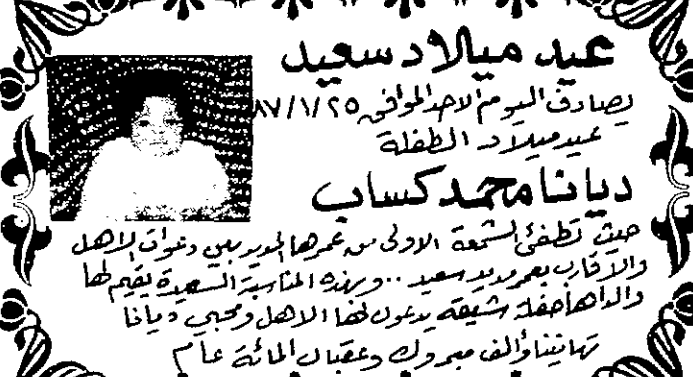 عيد ميلاد سعيد
يصادف اليوم الاحد الموافق ٨٧/١/٢٥
عيد ميلاد الطفلة
ديانا محمد كساب
حيث تطفئ الشمعة الاولى من عمرها المديد بين دعوات الاهل
والاقارب بعمر مديد سعيد .. وبهذه المناسبة السعيدة يقيم لها
والداها حفلة شيقه يدعون لها الاهل ومحبي ديانا
تهانينا وألف مبروك وعقبال المائة عام